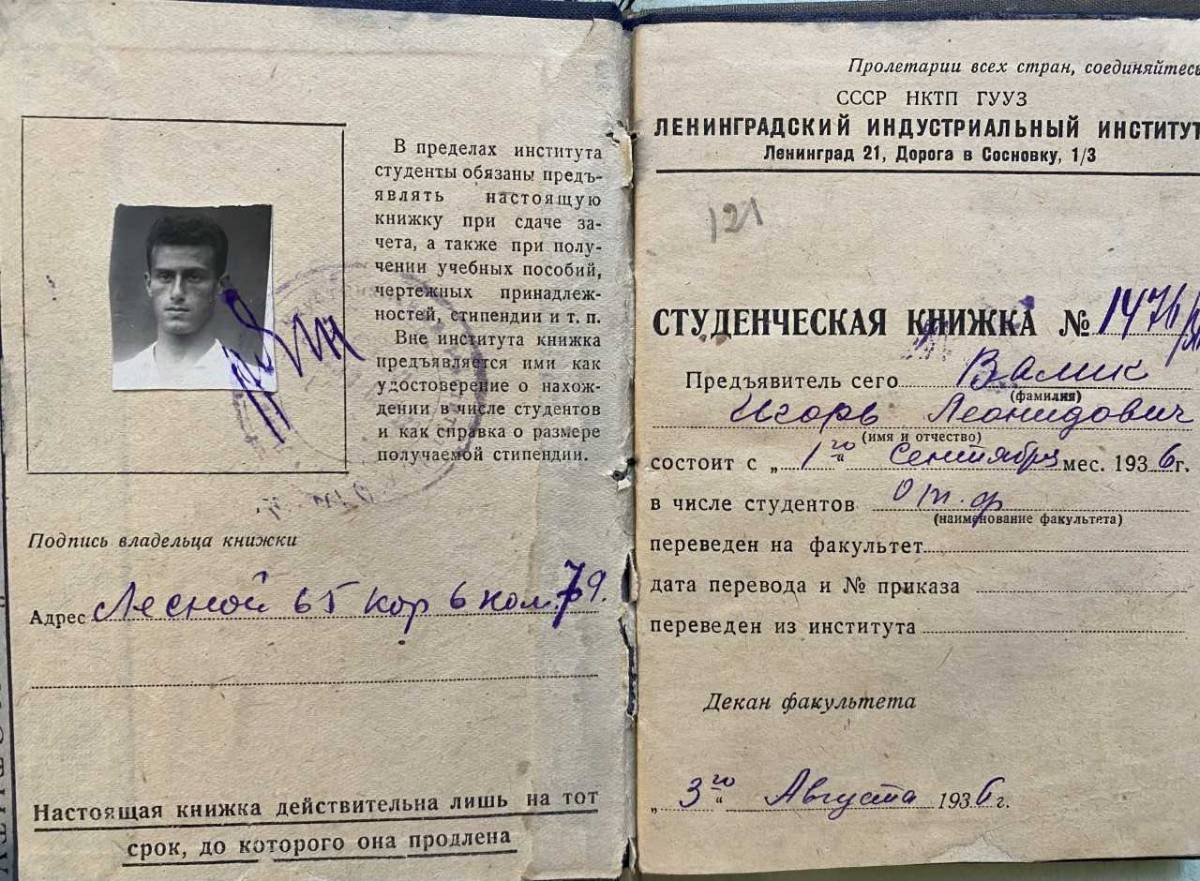 В пределах института
студенты обязаны предъ-
являть настоящую
книжку при сдаче за-
чета, а также при полу-
чении учебных пособий,
чертежных принадлеж-
ностей, стипендии и т. п.
Вне института книжка
предъявляется ими как
удостоверение о нахож-
дении в числе студентов
и как справка о размере
получаемой стипендии.
Подпись владельца книжки
Адрес Лесной 65 кор 6 ком. 79.
Настоящая книжка действительна лишь на тот
срок, до которого она продлена
Пролетарии всех стран, соединяйтесь
СССР НКТП ГУУЗ
ЛЕНИНГРАДСКИЙ ИНДУСТРИАЛЬНЫЙ ИНСТИТУТ
Ленинград 21, Дорога в Сосновку, 1/3
121
СТУДЕНЧЕСКАЯ КНИЖКА № 1476/
Предъявитель сего Валик
(фамилия)
Игорь Леонидович
(имя и отчество)
состоит с „ 1го “ Сентября мес. 1936 г.
в числе студентов От. ф
(наименование факультета)
переведен на факультет
дата перевода и № приказа
переведен из института
Декан факультета
„ 3го “ Августа 1936 г.